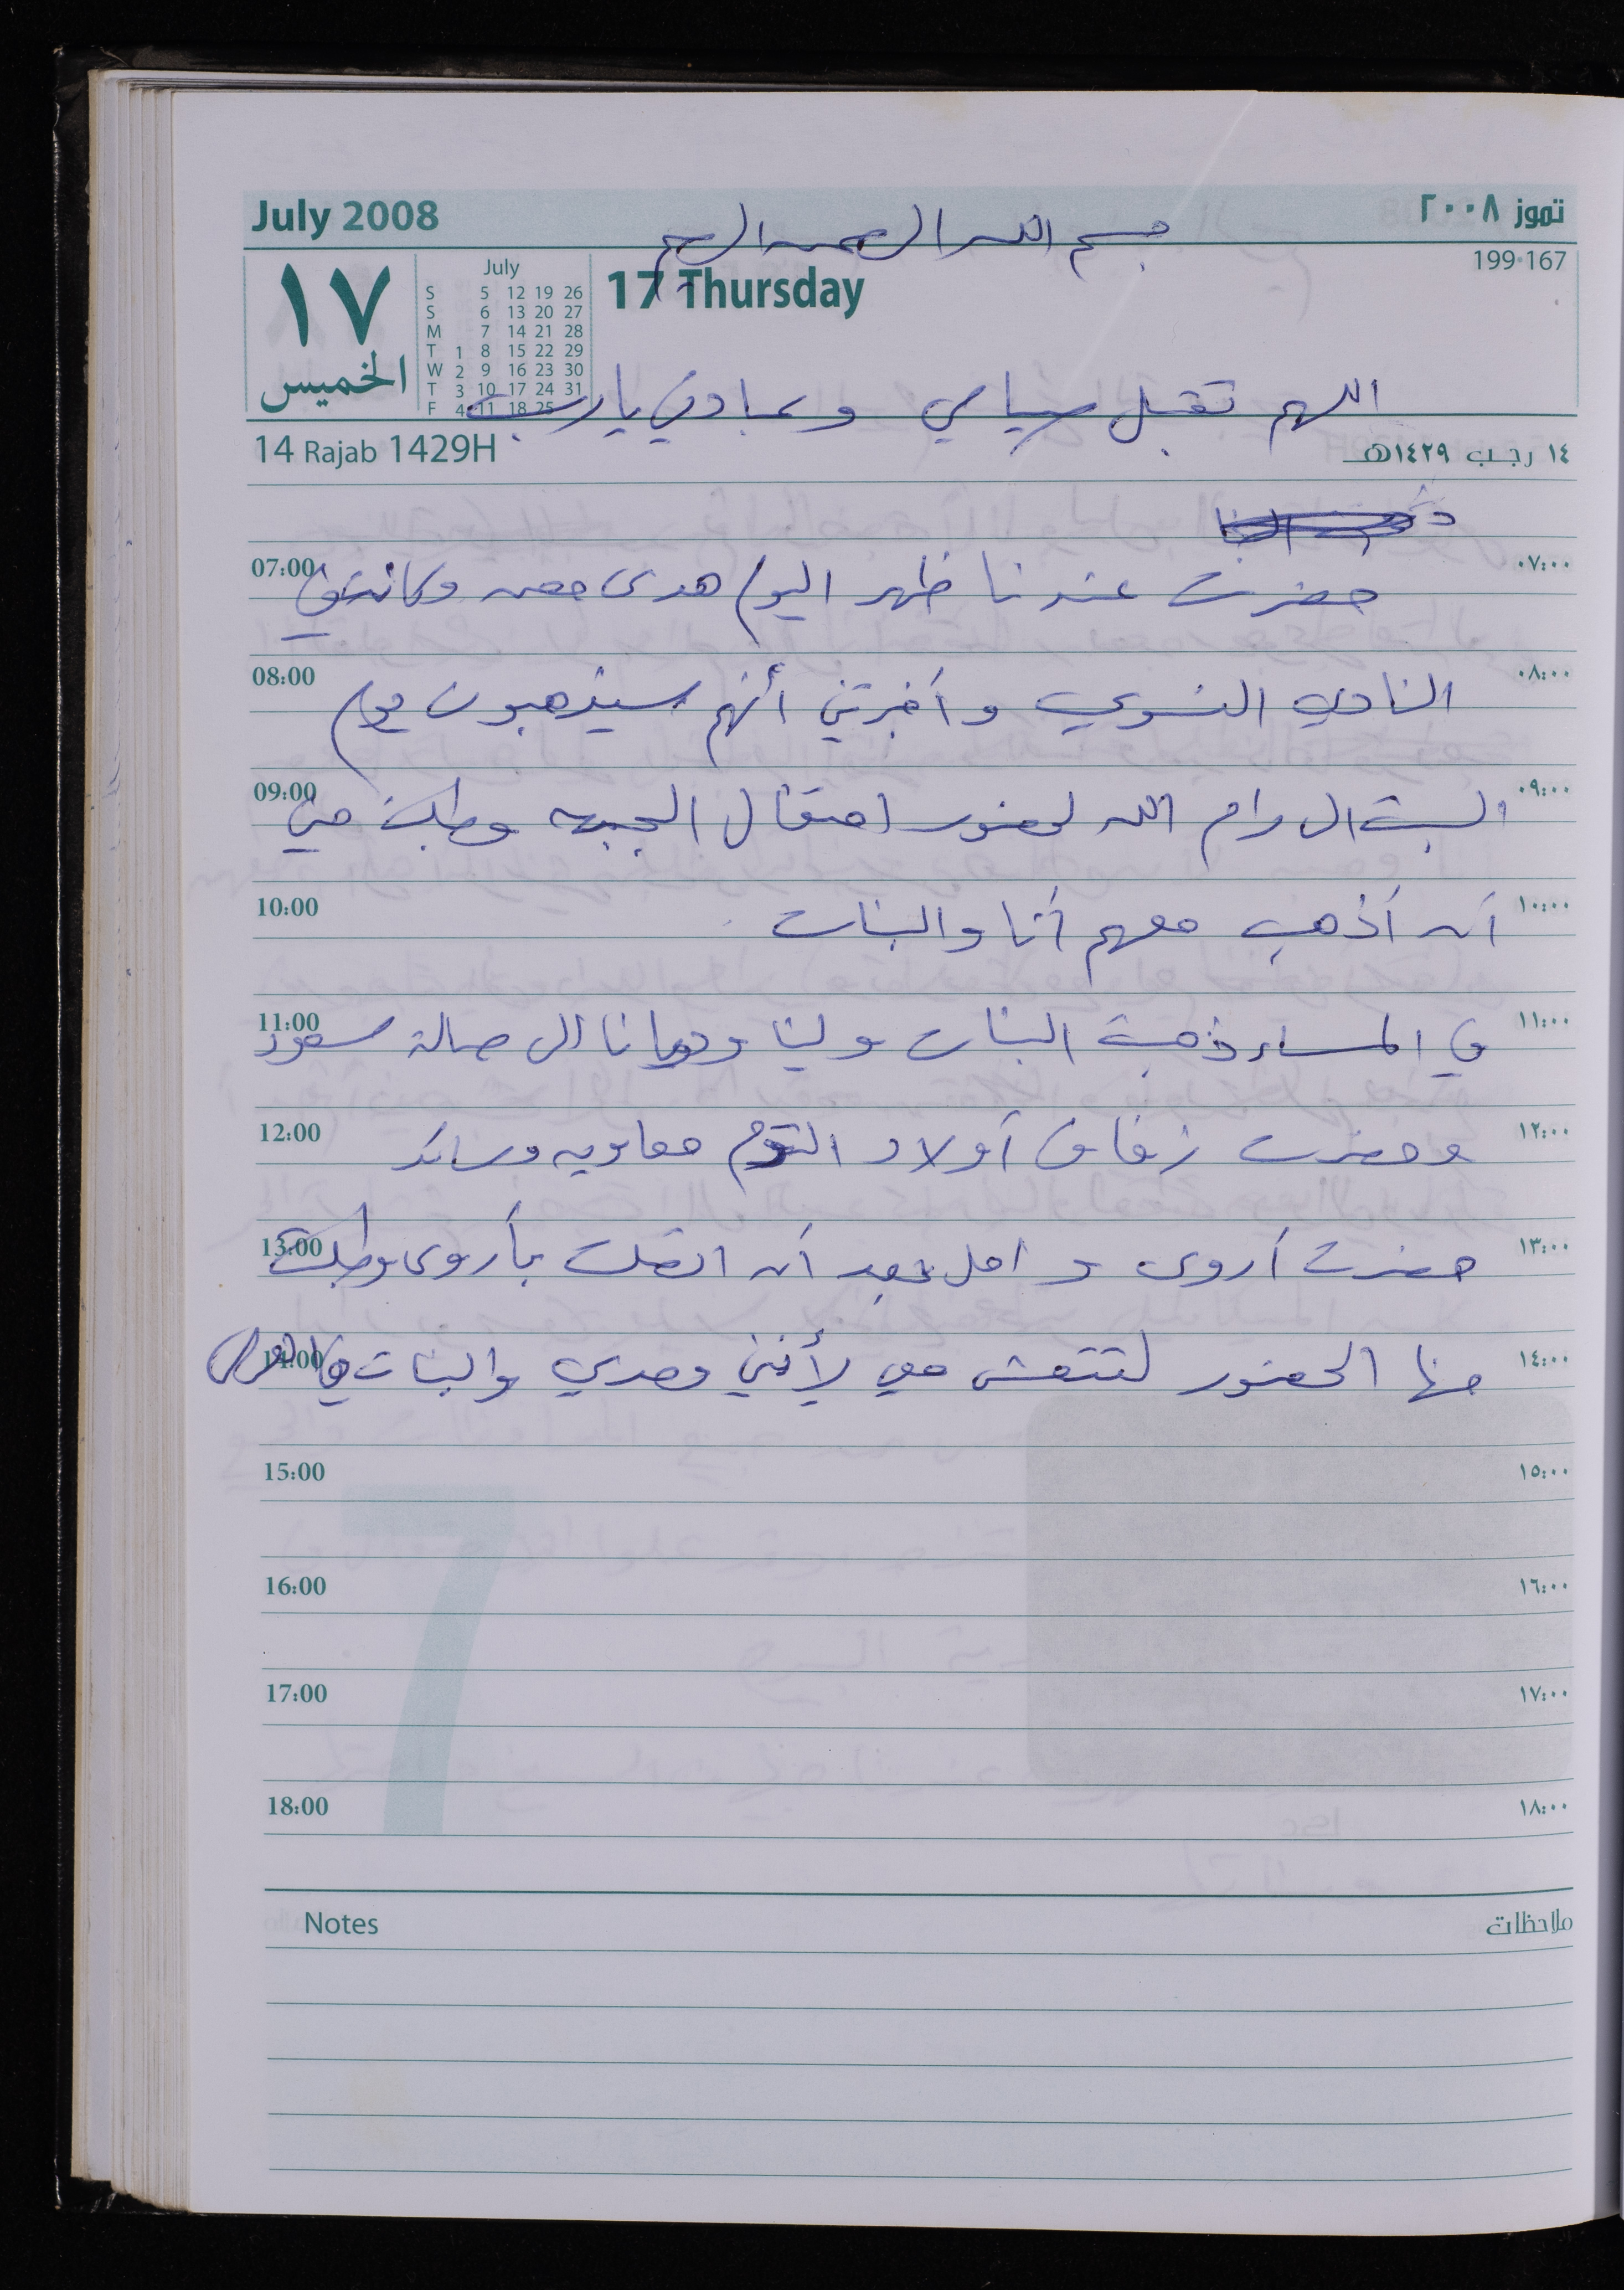 July 2008
تموز ٢٠٠٨
بسم الله الرحمن الرحيم
199-167
١٧
الخميس
July
S 5 12 19 26
S 6 13 20 27
M 7 14 21 28
T 1 8 15 22 29
W 2 9 16 23 30
T 3 10 17 24 31
F 4 11 18 25
17 Thursday
اللهم تقبل صيامي وعبادتي يا رب
14 Rajab 1429H
١٤ رجب ١٤٢٩هـ
07:00 حضرت عندنا ظهر اليوم هدى وكانت في ٠٧:٠٠
08:00 النادي النسوي وأخبرتني أنهم سيذهبون يوم ٠٨:٠٠
09:00 السبت الى رام الله لحضور احتفال الجبهه وطلبت مني ٠٩:٠٠
10:00 أن أذهب معهم أنا والبنات ١٠:٠٠
11:00 في المساء ذهبت البنات ولينا الى صالة سعود ١١:٠٠
12:00 وحضرت زفاف أولاد معاويه وسائد ١٢:٠٠
13:00 حضرت أروى و امل بعد أن اتصلت بأروى وطلبت ١٣:٠٠
14:00 منها الحضور لتتعشى معي لأنني وحدي والبنات في ١٤:٠٠
15:00 ١٥:٠٠
16:00 ١٦:٠٠
17:00 ١٧:٠٠
18:00 ١٨:٠٠
7
Notes
ملاحظات